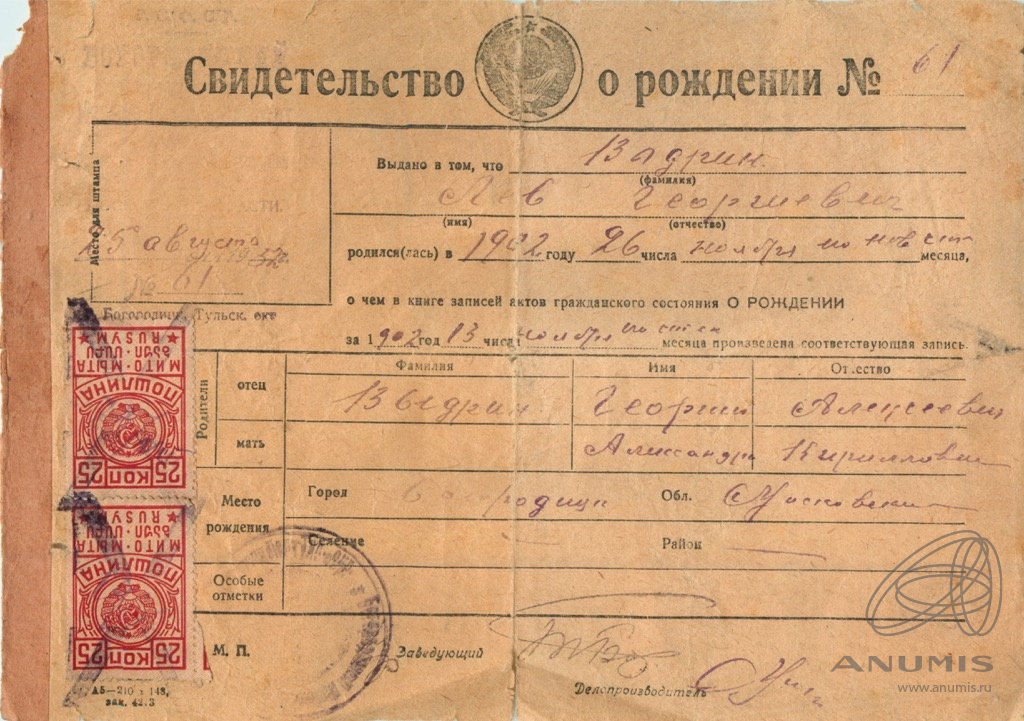 Свидетельство о рождении № 61
Место для штампа
25 августа
№ 61
Богородицк, Тульск. окт
Выдано в том, что Выдрин
(фамилия)
Лев Георгиевич
(имя) (отчество)
родился(лась) в 1902 году 26 числа ноября по нов ст месяца,
о чем в книге записей актов гражданского состояния О РОЖДЕНИИ
за 1902 год 13 числа ноября по ст ст месяца произведена соответствующая запись.
Родители
Фамилия Имя Отчество
отец Выдрин Георгий Алексеевич
мать Александра Кирилловна
Место рождения
Город Богородицк Обл. Московская
Селение Район
Особые отметки
М. П. Заведующий
Делопроизводитель
А5—210 х 148,
зак. 42.3
RUSYM
МИТО·МЫТА
ПОШЛИНА
25 КОП 25
RUSYM
МИТО·МЫТА
ПОШЛИНА
25 КОП 25
ANUMIS
www.anumis.ru